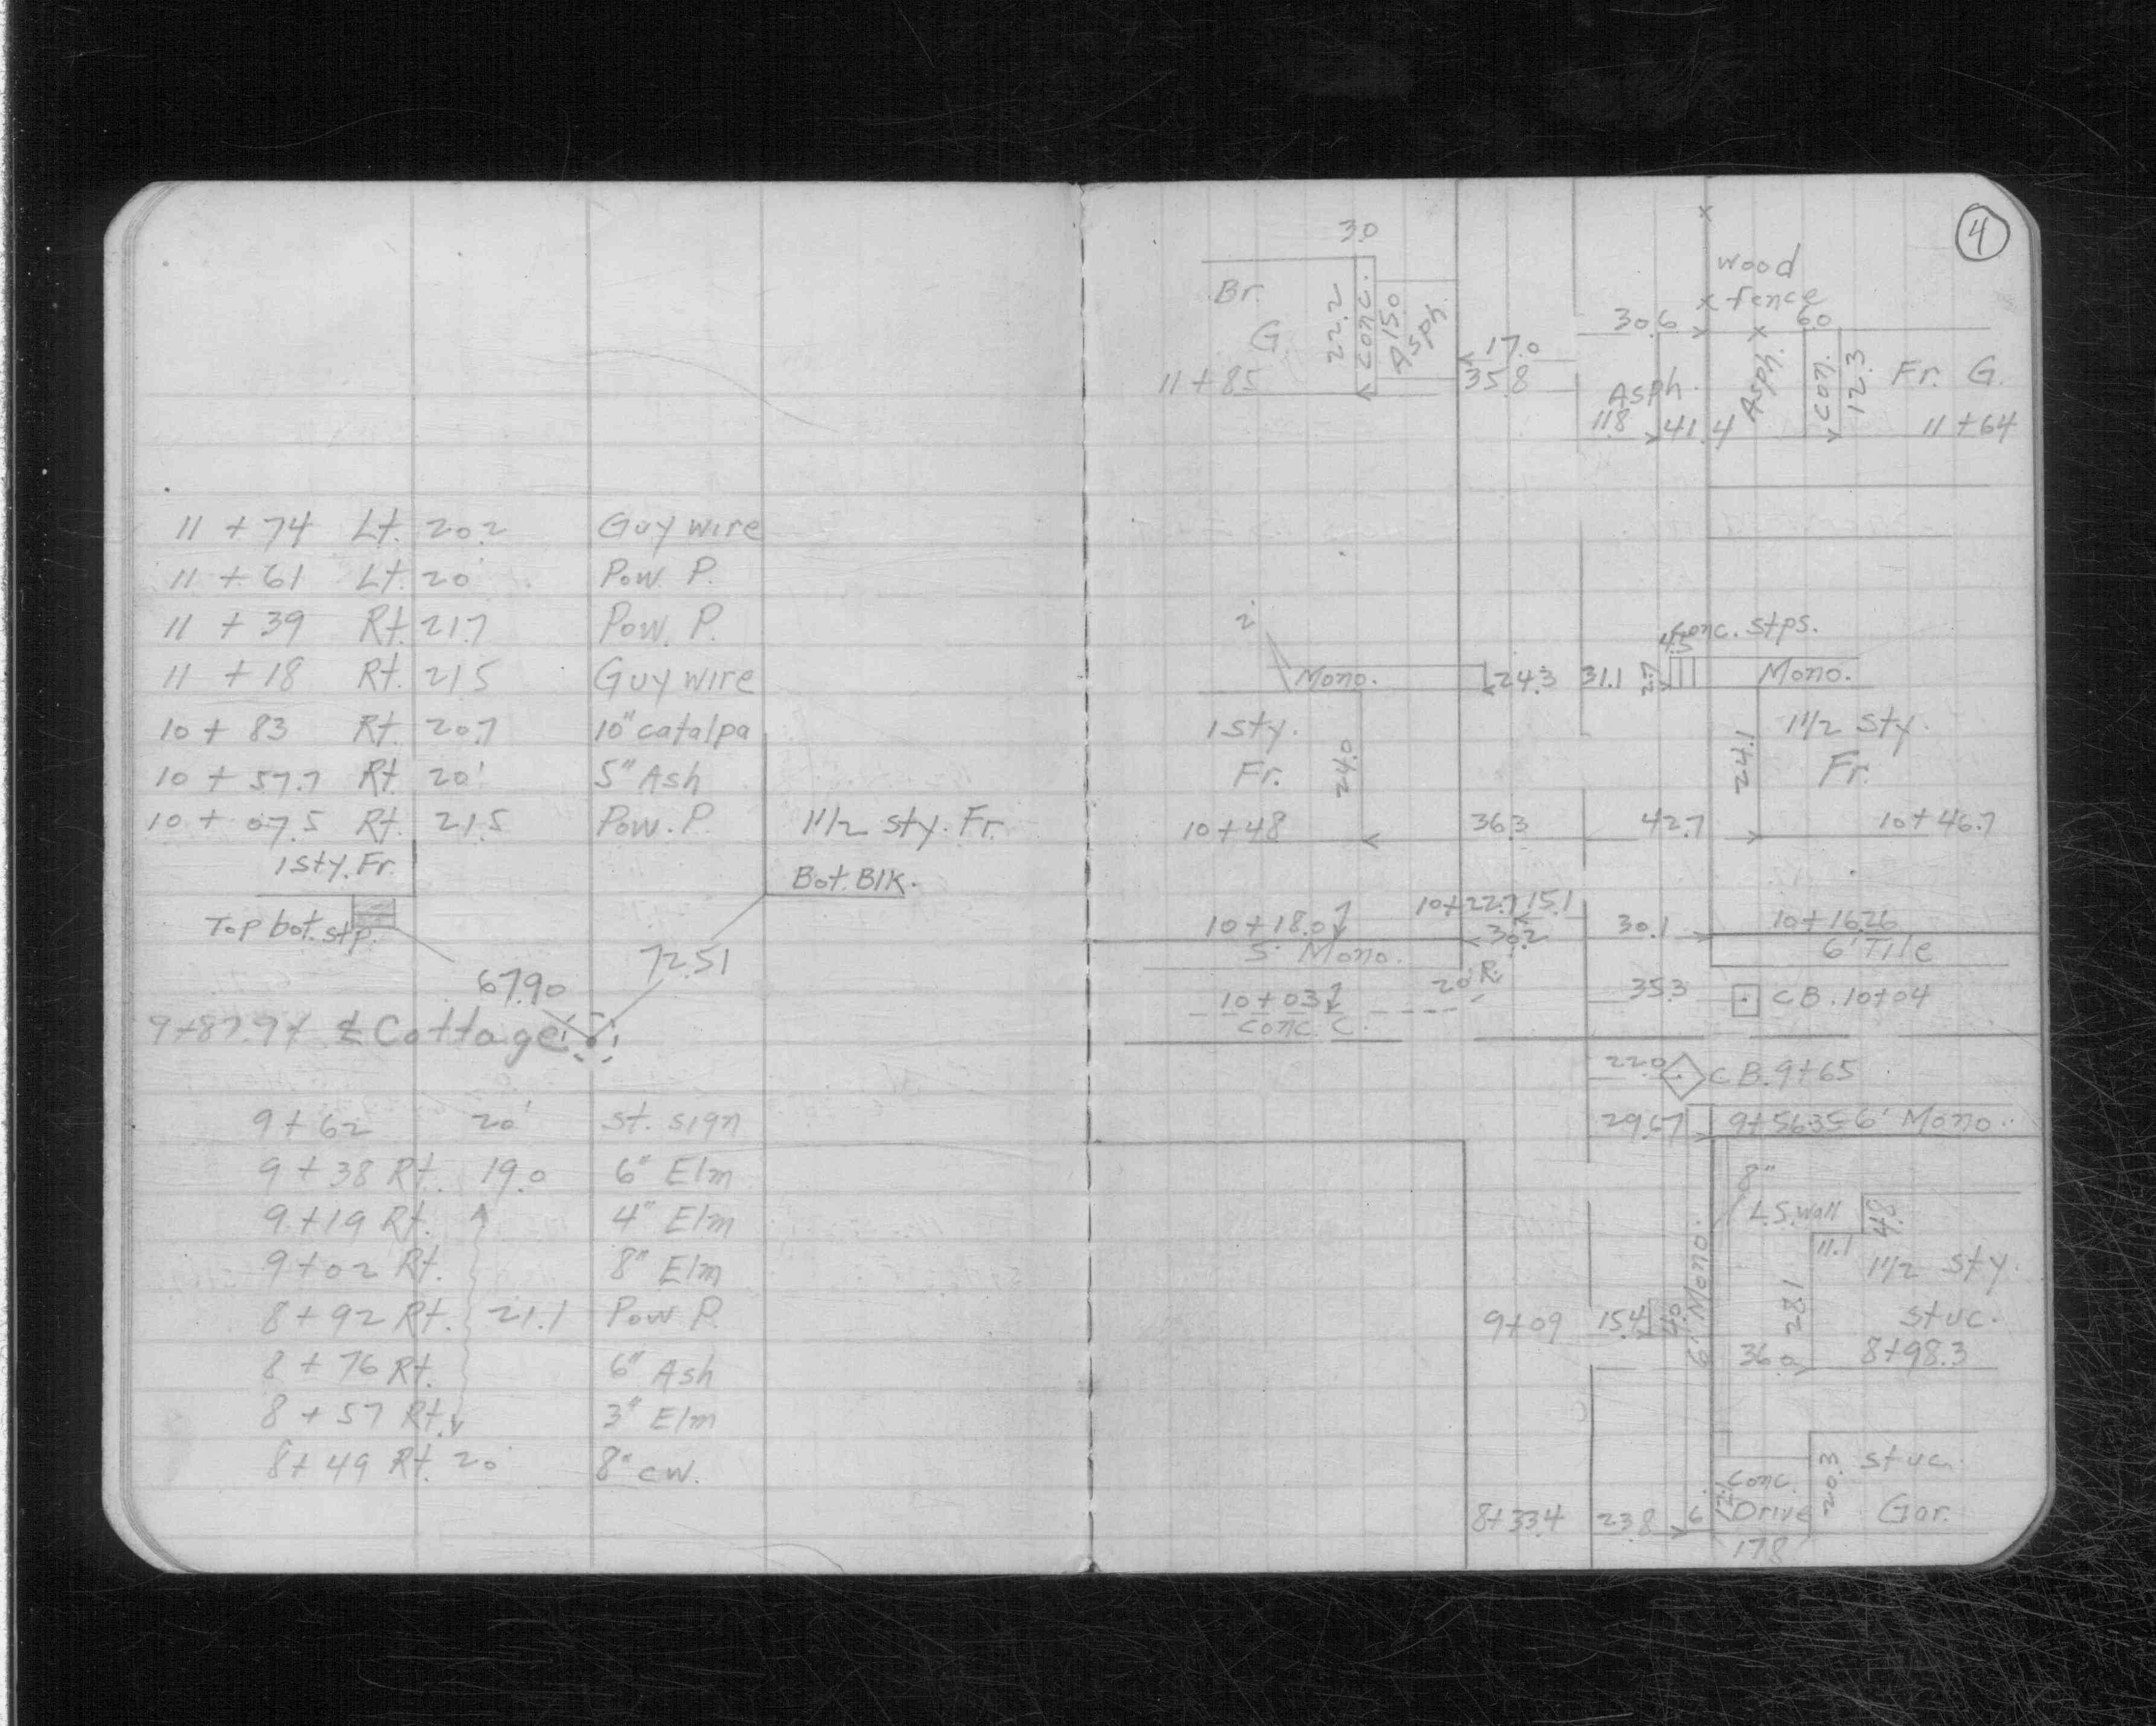 11 + 74 Lt. 20.2 Guy wire
11 + 61 Lt. 20' Pow. P.
11 + 39 Rt. 21.7 Pow. P.
11 + 18 Rt. 21.5 Guy wire
10 + 83 Rt. 20.7 10" catalpa
10 + 57.7 Rt. 20' 5" Ash
10 + 07.5 Rt. 21.5 Pow. P.
1 1/2 sty. Fr.
1 sty. Fr.
Bot. Blk.
Top bot. stp.
72.51
67.90
℄ Cottage
9 + 62 20' st. sign
9 + 38 Rt. 19.0 6" Elm
9 + 19 Rt. 4" Elm
9 + 02 Rt. 8" Elm
8 + 92 Rt. 21.1 Pow P.
8 + 76 Rt. 6" Ash
8 + 57 Rt. 3" Elm
8 + 49 Rt. 20' 8" cw.
4
3.0
wood
x fence
Br.
G.
22.2
conc.
15.0
Asph.
30.6
6.0
17.0
35.8
11 + 85
Asph.
11.8
41.4
Asph.
con.
12.3
Fr. G.
11 + 64
conc. stps.
4.5
Mono.
24.3
31.1
2.7
Mono.
1 sty.
Fr.
24.0
24.1
1 1/2 sty.
Fr.
10 + 48
36.3
42.7
10 + 46.7
10 + 22.7
15.1
10 + 18.0
30.2
30.1
10 + 16.26
5' Mono.
6' Tile
20' R.
35.3
CB. 10+04
10 + 03
conc. C.
22.0
CB. 9+65
29.67
9+56.35 6' Mono.
8"
L.S. Wall
4.8
11.1
1 1/2 sty.
stuc.
28.1
6' Mono.
9+09
15.4
4.0
36.0
8+98.3
conc.
Drive
12.1
20.3
stuc.
Gar.
8+33.4
23.8
6'
17.8